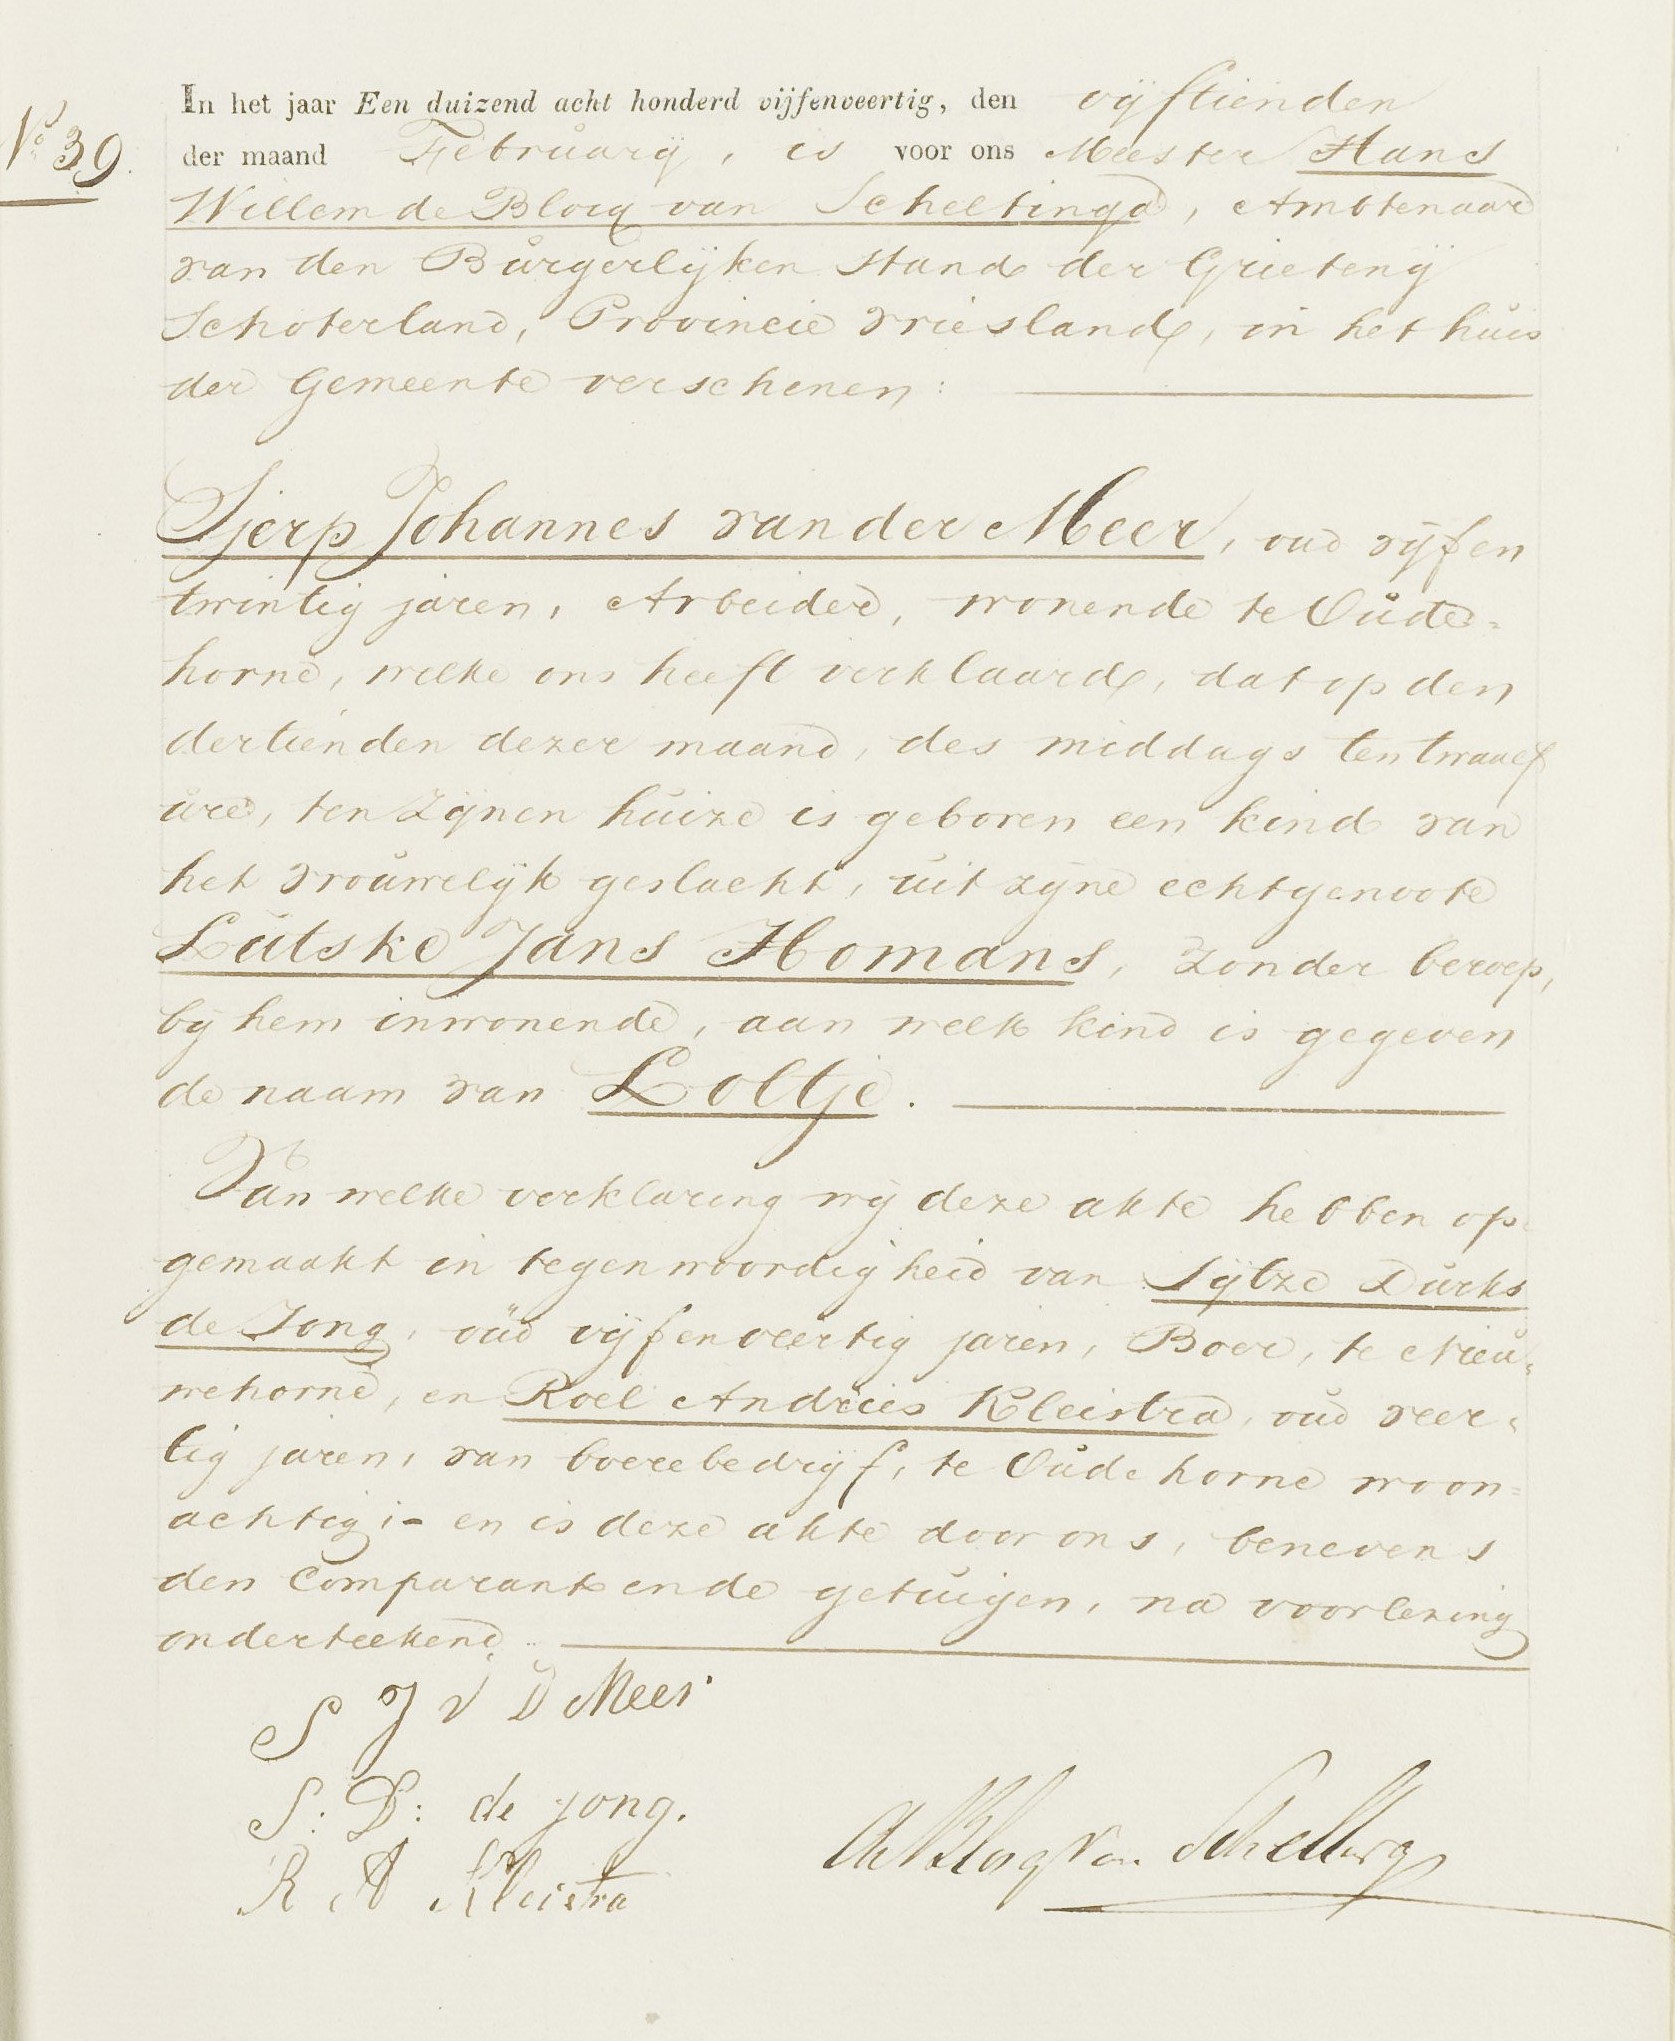 In het jaar Een duizend acht honderd vijfenveertig, den vijftienden
N° 39.
der maand Februarij, is voor ons Meester Hans
Willem de Blocq van Scheltinga, Ambtenaar
van den Burgerlijken Stand der Grietenij
Schoterland, Provincie Vriesland, in het huis
der Gemeente verschenen:
Sjerp Johannes van der Meer, oud vijfen
twintig jaren, Arbeider, wonende te Oude=
horne, welke ons heeft verklaard, dat op den
dertienden dezer maand, des middags ten twaalf
ure, ten zijnen huize is geboren een kind van
het vrouwelijk geslacht, uit zijne echtgenoote
Lutske Jans Homans, zonder beroep,
bij hem inwonende, aan welk kind is gegeven
de naam van Loltje.
Van welke verklaring wij deze akte hebben op
gemaakt in tegenwoordigheid van Sijtze Durks
de Jong, oud vijfenveertig jaren, Boer, te Nieu=
wehorne, en Roel Andries Kleistra, oud veer=
tig jaren, van boerebedrijf, te Oudehorne woon=
achtig;- en is deze akte door ons, benevens
den Comparant en de getuigen, na voorlezing
onderteekend.
S J V D Meer
S: D: de jong.
R A Kleistra
de Blocq van Scheltinga